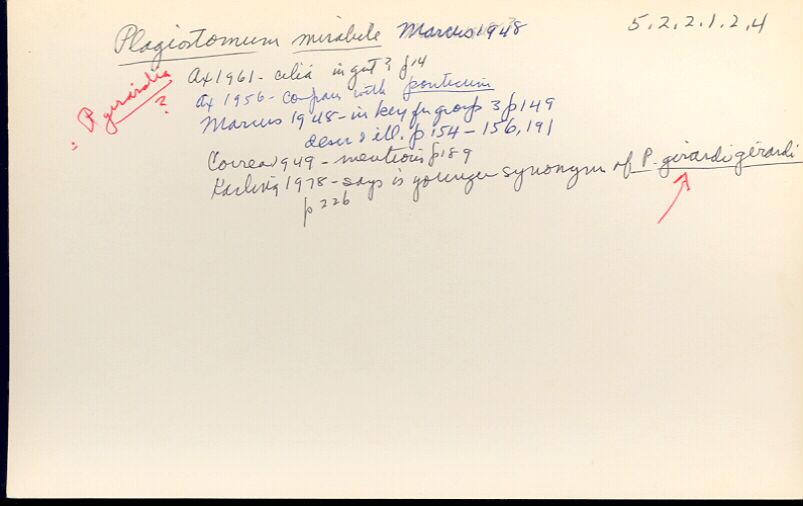 Plagiostomum mirabile Marcus 1948 5.2.2.1.2.4
: P girardia ?
Ax 1961 - cilia in gut? p 14
Ax 1956 - compares with ponticum
Marcus 1948 - in key for group 3 p 149
descr & ill. p 154 - 156, 191
Correa 1949 - mentions p 189
Karling 1978 - says is younger synonym of P. girardi girardi
p 226